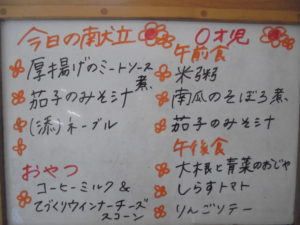 今日の献立
厚揚げのミートソース煮
茄子のみそ汁
(添)ネーブル
おやつ
コーヒーミルク&
てづくりウインナーチーズ
スコーン
0才児
午前食
米粥
南瓜のそぼろ煮
茄子のみそ汁
午後食
大根と青菜のおじや
しらすトマト
りんごソテー